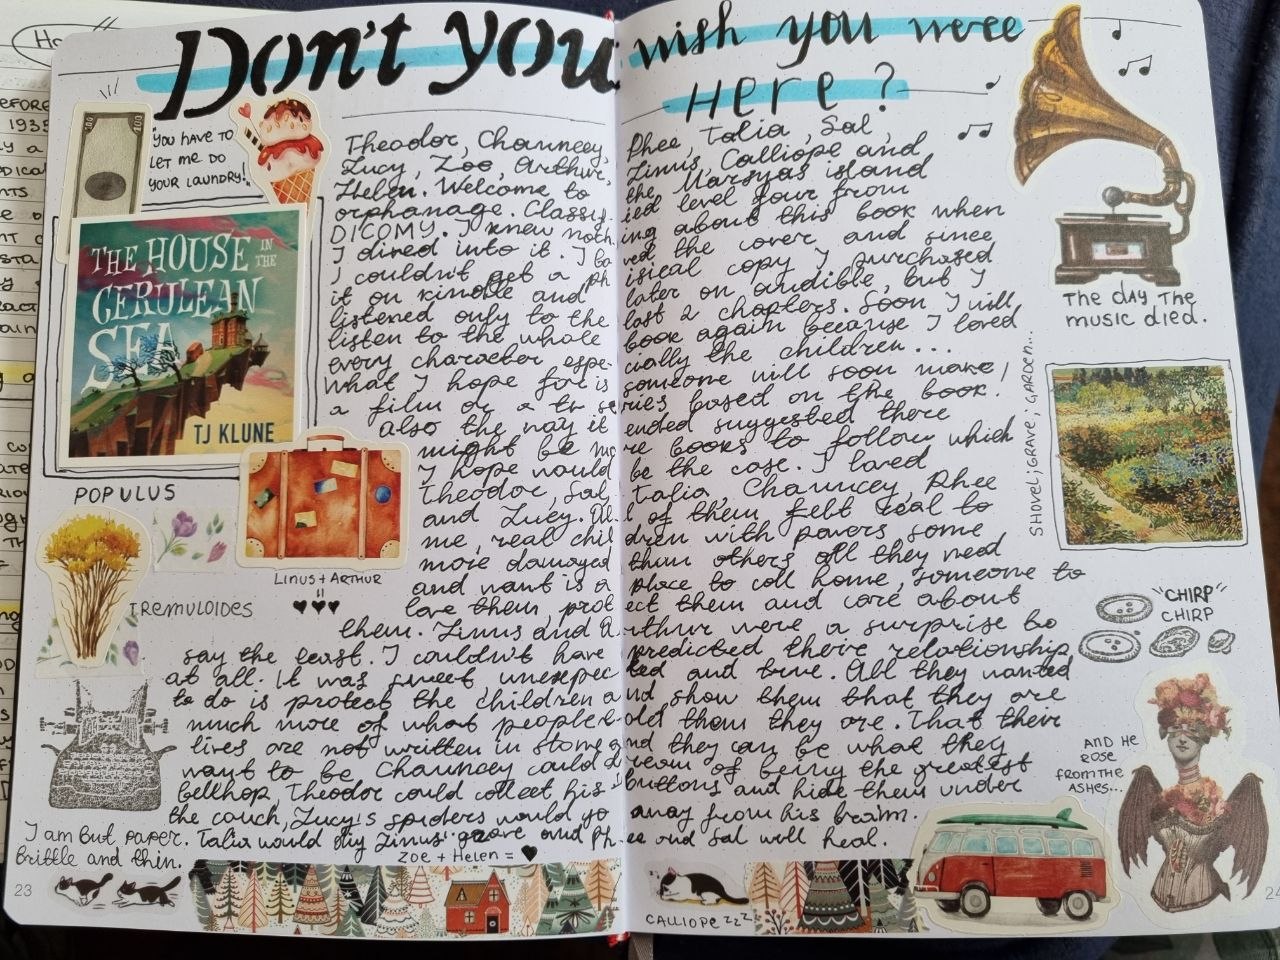 Don't you wish you were
Here?
100 100
"YOU HAVE TO
LET ME DO
YOUR LAUNDRY!"
THE HOUSE IN THE
CERULEAN
SEA
TJ KLUNE
Theodor, Chauncey, Phee, Talia, Sal,
Lucy, Zoe, Arthur, Linus, Calliope and
Helen. Welcome to the Marsyas island
orphanage. Classified level four from
DICOMY. I knew nothing about this book when
I dived into it. I loved the cover and since
I couldn't get a phisical copy I purchased
it on kindle and later on audible, but I
listened only to the last 2 chapters. Soon I will
listen to the whole book again because I loved
every character especially the children...
what I hope for is someone will soon make
a film or a tv series based on the book.
also the way it ended suggested there
might be more books to follow which
I hope would be the case. I loved
Theodor, Sal, Talia, Chauncey, Phee
and Lucy. All of them felt real to
me, real children with powers some
more damaged than others all they need
and want is a place to call home, someone to
love them, protect them and care about
them. Linus and Arthur were a surprise to
say the least. I couldn't have predicted there relationship
at all. It was sweet unexpected and true. All they wanted
to do is protect the children and show them that they are
much more of what people told them they are. That their
lives are not written in stone and they can be what they
want to be Chauncey could dream of being the greatest
bellhop, Theodor could collect his buttons and hide them under
the couch, Lucy's spiders would go away from his brain.
Talia would dig Linus' grave and Phee and Sal will heal.
POPULUS
TREMULOIDES
LINUS + ARTHUR
=
I am but paper.
Brittle and thin.
Zoe + Helen =
23
The day the
music died.
SHOVEL, GRAVE, GARDEN...
"CHIRP"
CHIRP
AND HE
ROSE
FROM THE
ASHES...
CALLIOPE zzz